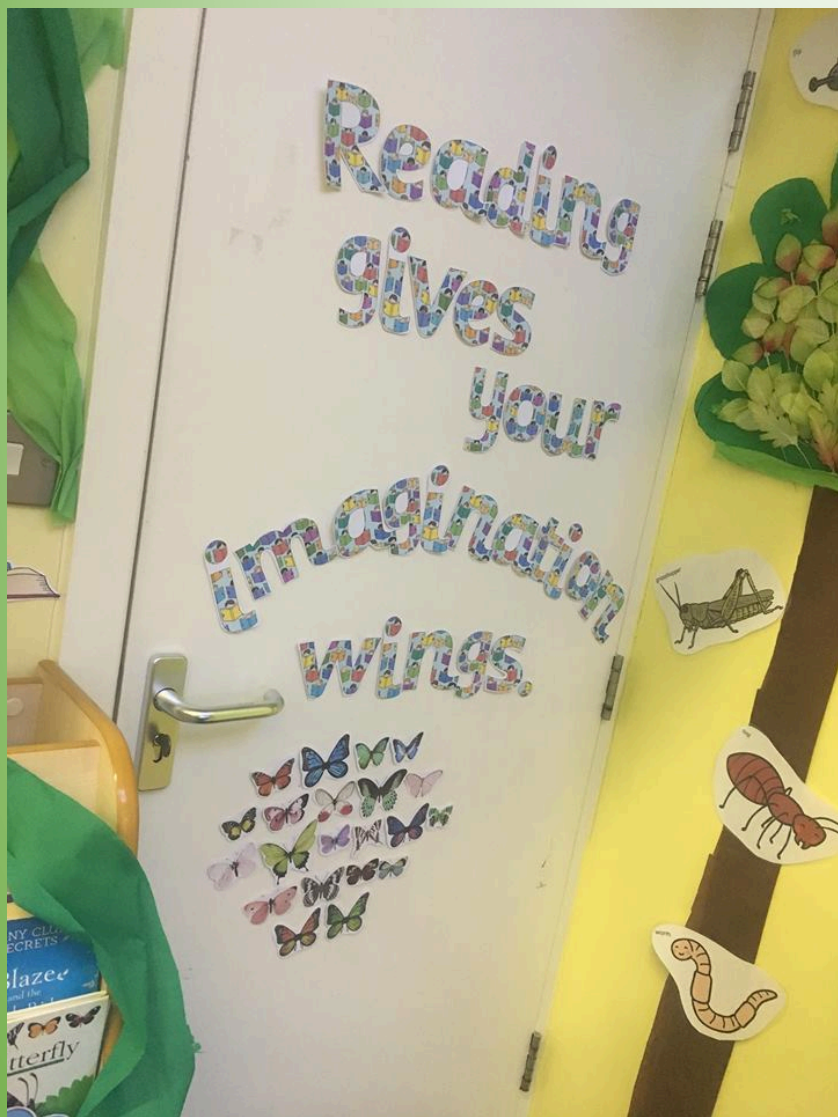 Reading
gives
your
imagination
wings.
grasshopper
ant
worm
SECRETS
Blaze
and the